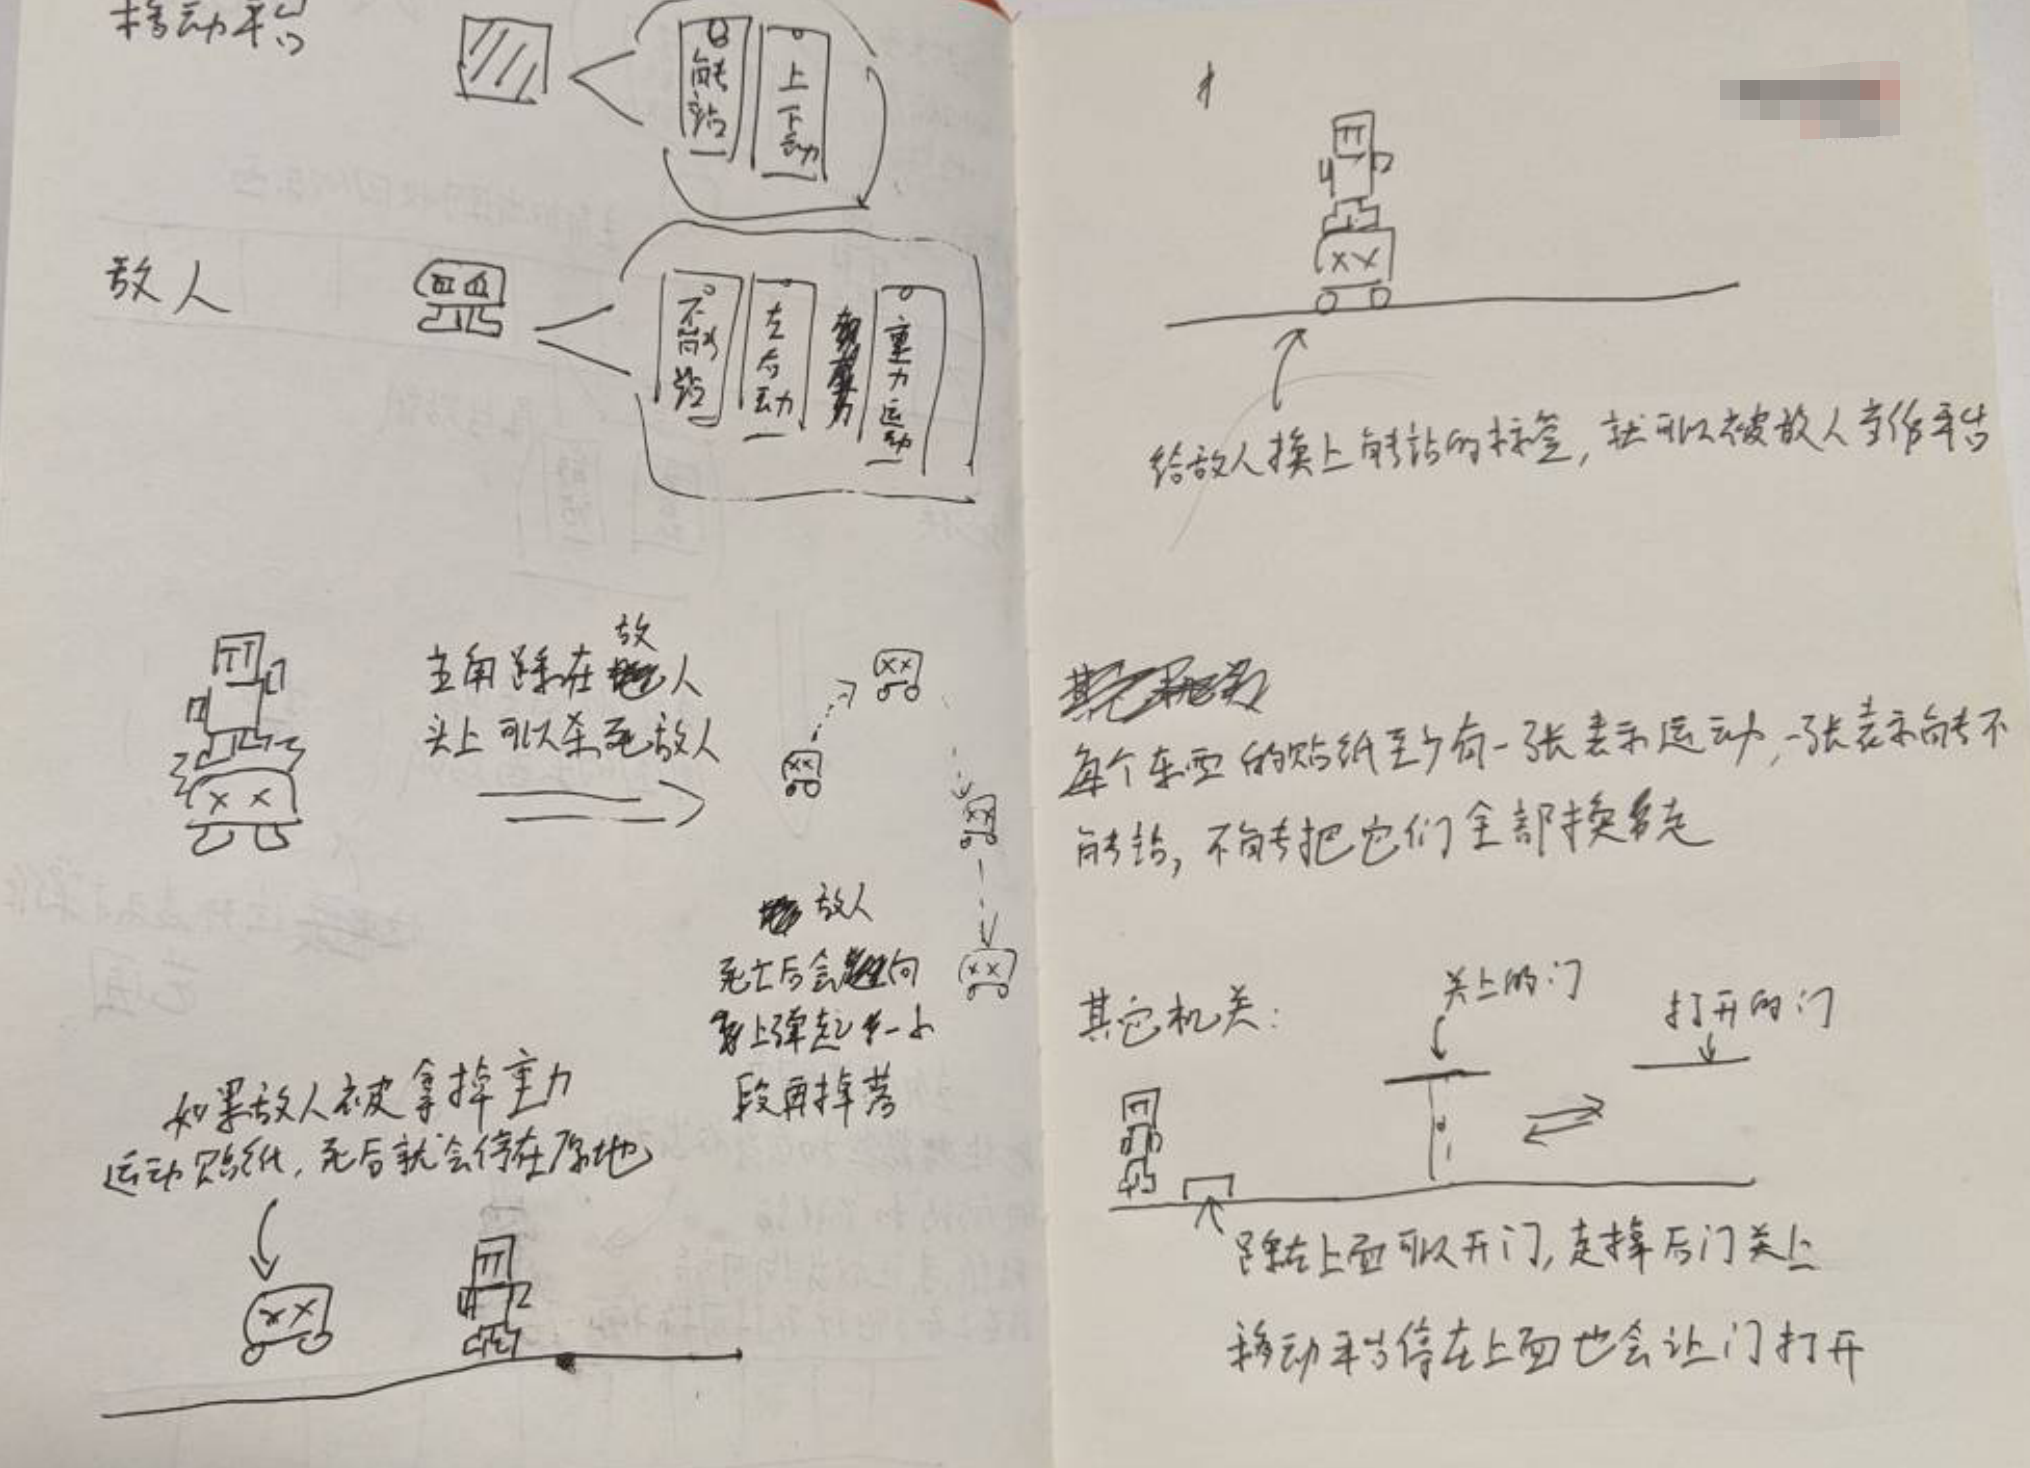 移动平台
能站
上下动
敌人
不能站
左右动
重力运动
主角踩在敌人
头上可以杀死敌人
敌人
死亡后会向
上弹起一小
段再掉落
如果敌人被拿掉重力
运动贴纸，死后就会停在原地
给敌人换上能站的标签，就可以被敌人当作平台
每个东西的贴纸至少有一张表示运动，一张表示能不
能站，不能把它们全部换走
其它机关：
关上的门
打开的门
踩在上面可以开门，走掉后门关上
移动平台停在上面也会让门打开